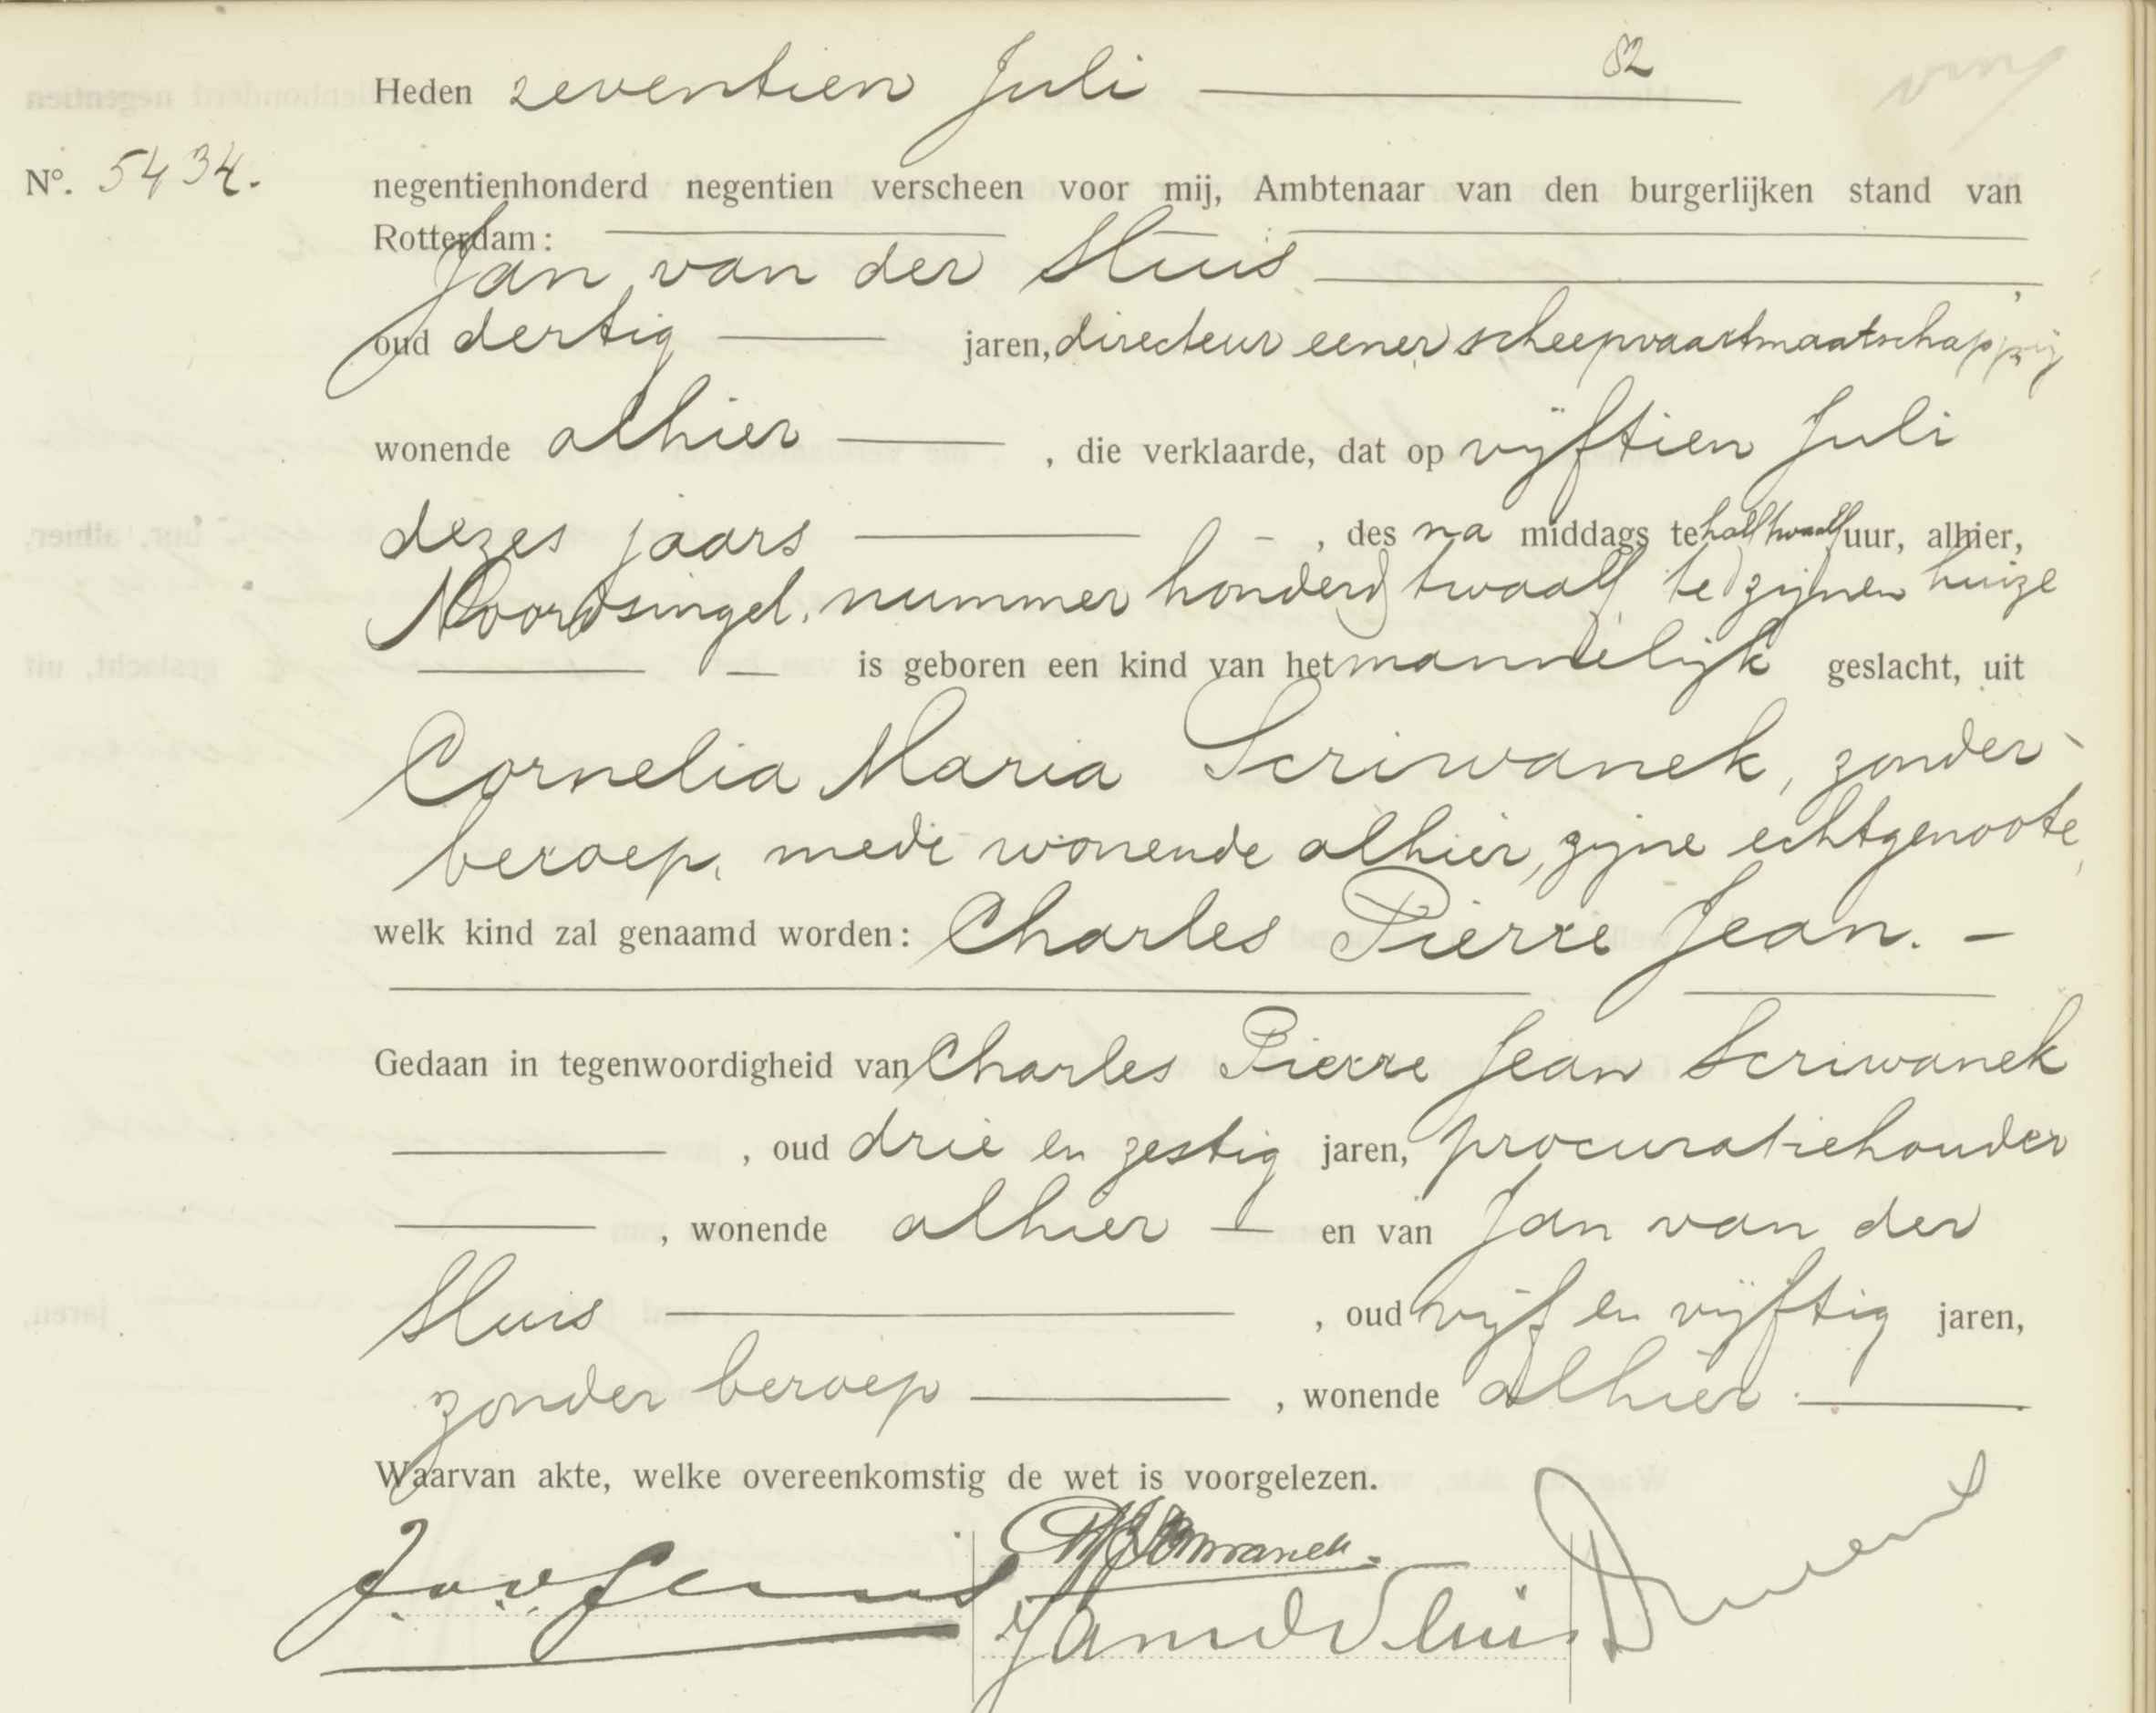 82
Heden zeventien Juli
No. 5434.
negentienhonderd negentien verscheen voor mij, Ambtenaar van den burgerlijken stand van
Rotterdam:
Jan van der Sluis,
oud dertig jaren, directeur eener scheepvaartmaatschappij
wonende alhier, die verklaarde, dat op vijftien Juli
dezes jaars, des na middags te half twaalf uur, alhier,
Noordsingel, nummer honderd twaalf te zijnen huize
is geboren een kind van het mannelijk geslacht, uit
Cornelia Maria Scriwanek, zonder
beroep, mede wonende alhier, zijne echtgenoote,
welk kind zal genaamd worden: Charles Pierre Jean. -
Gedaan in tegenwoordigheid van Charles Pierre Jean Scriwanek
, oud drie en zestig jaren, procuratiehouder
, wonende alhier en van Jan van der
Sluis, oud vijf en vijftig jaren,
zonder beroep, wonende alhier.
Waarvan akte, welke overeenkomstig de wet is voorgelezen.
J. v. d. Sluis
Scriwanek.
J van d Sluis